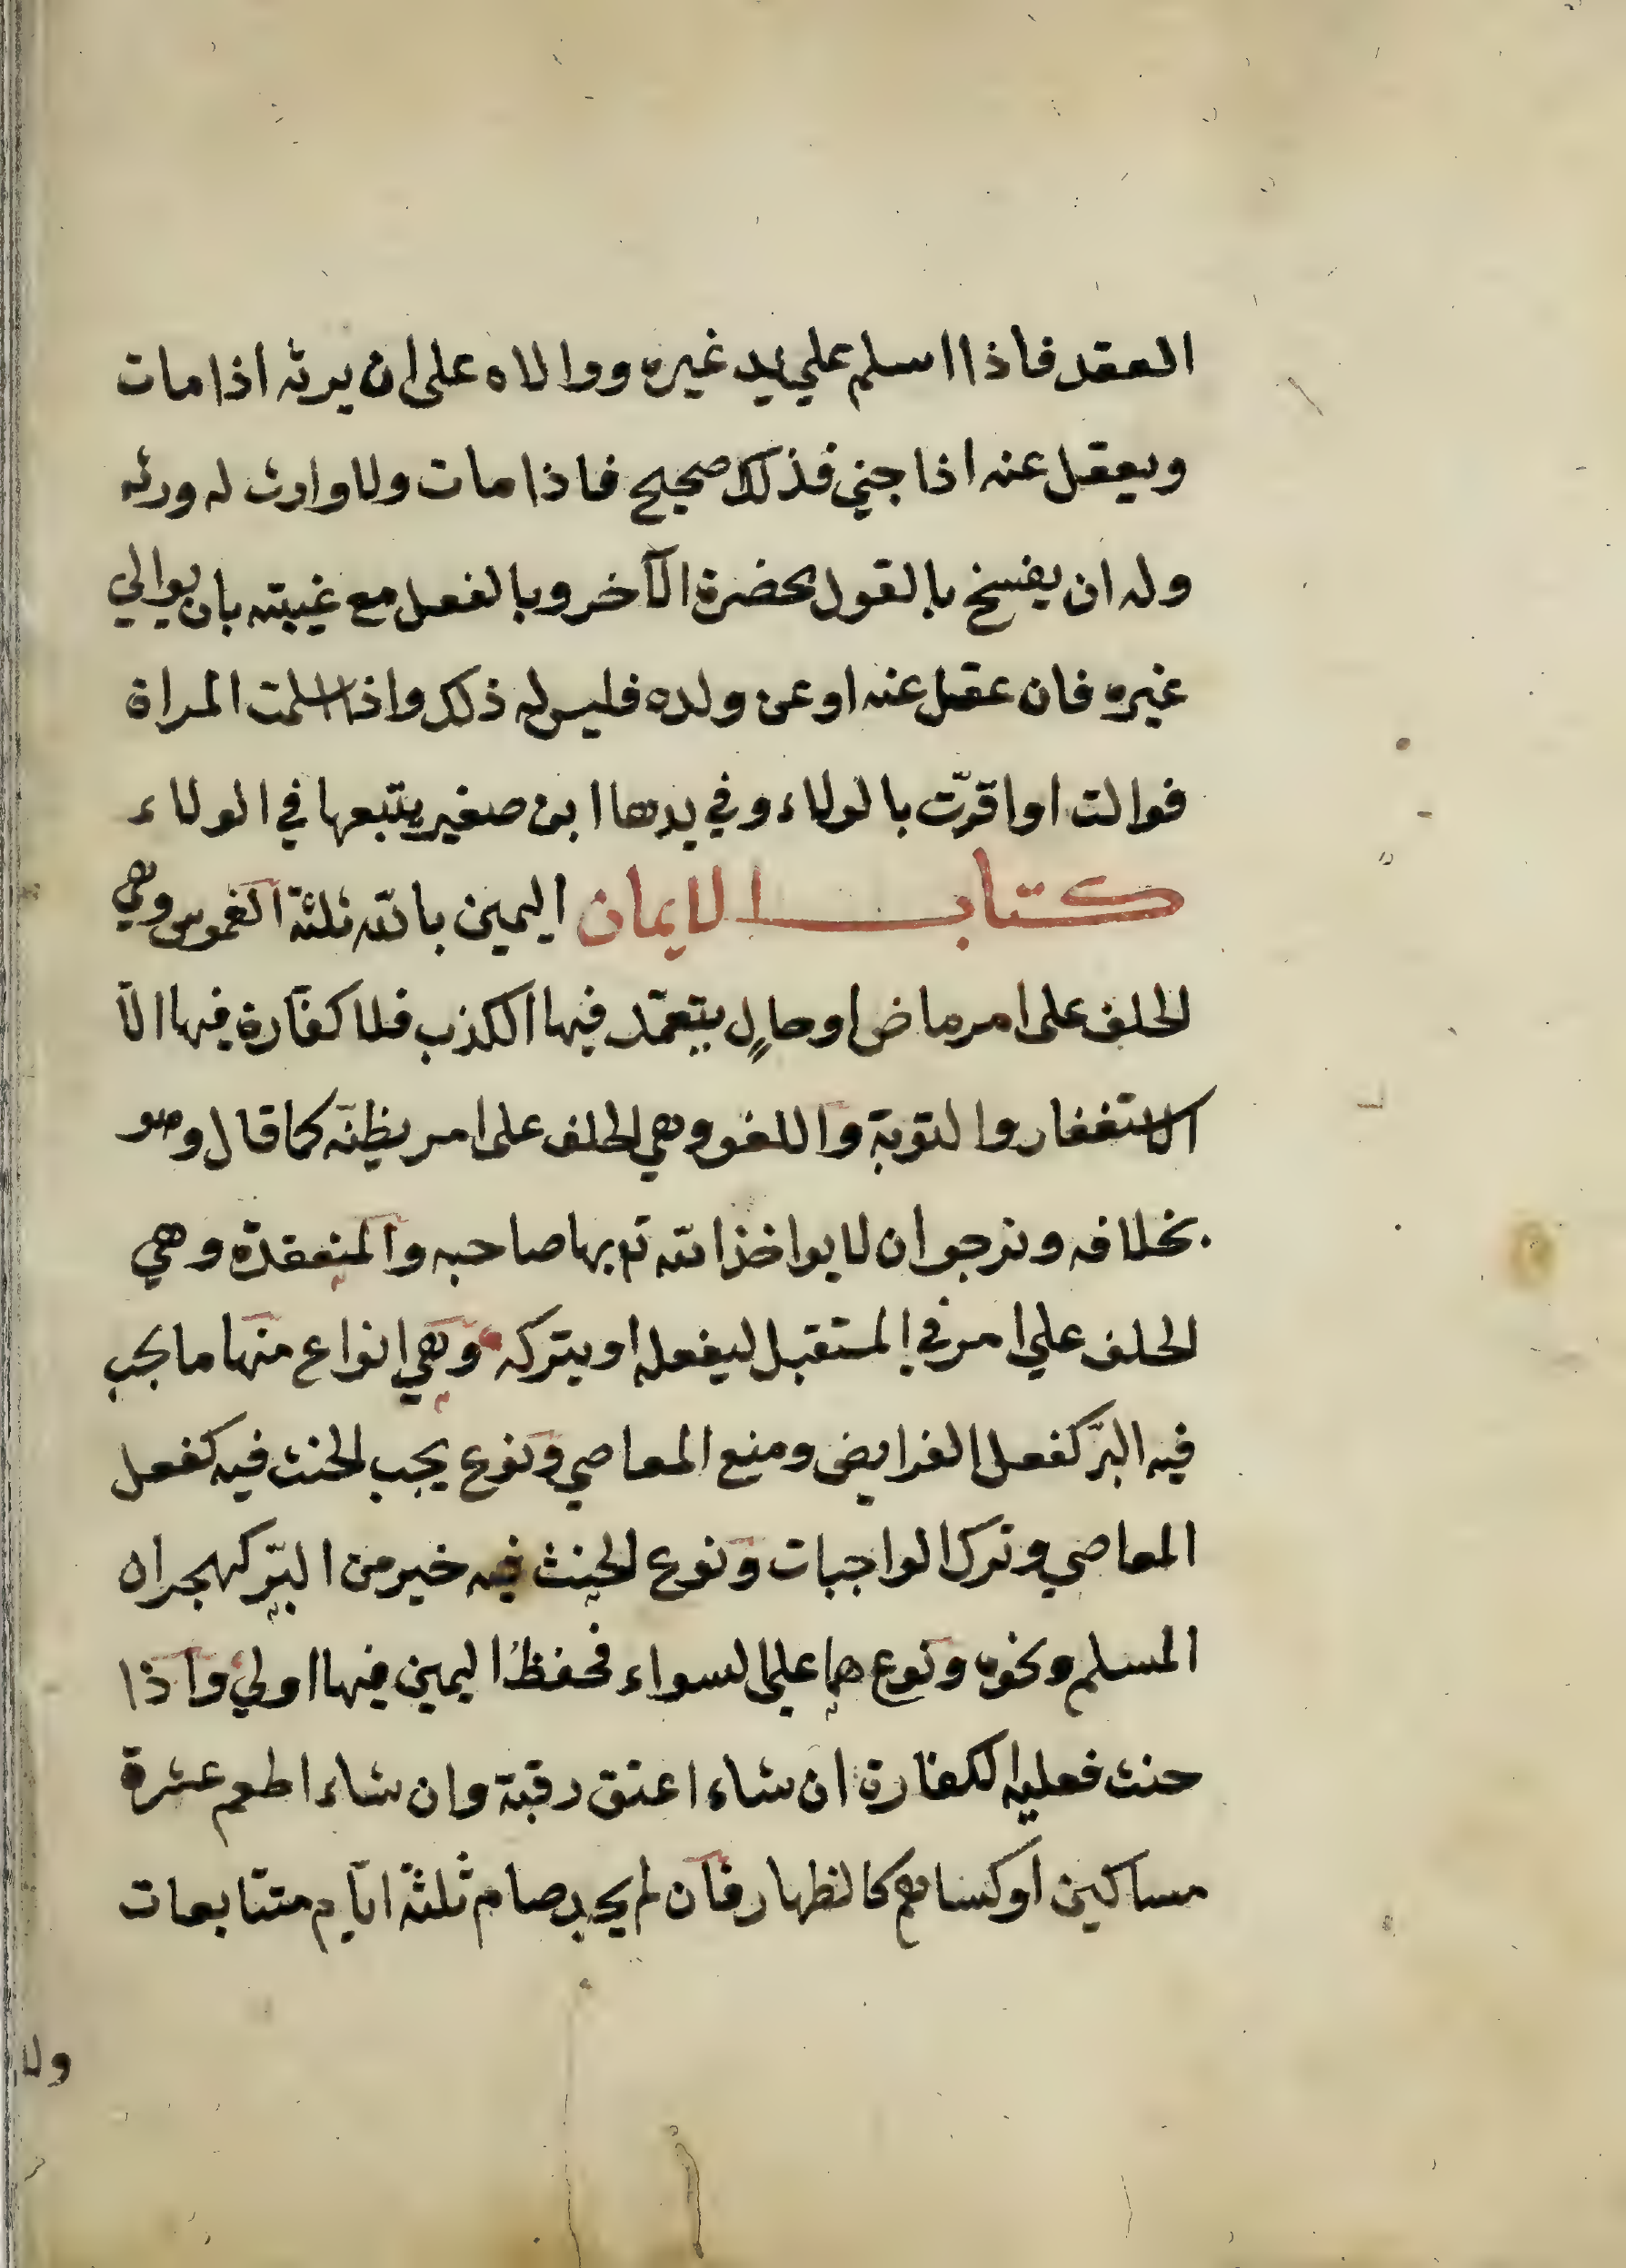 العقد فاذا اسلم علي يد غيره ووالاه على ان يرثه اذا مات
ويعقل عنه اذا جني فذلك صحيح فاذا مات ولا وارث له ورثه
وله ان يفسخ بالقول بحضرة الآخر وبالفعل مع غيبته بان يوالي
غيره فان عقل عنه او عن ولده فليس له ذلك واذا اسلمت المراة
فوالت او اقرّت بالولاء وفي يدها ابن صغير يتبعها في الولاء
كتاب الايمان اليمين بالله ثلثة الغموس وهي
الحلف على امر ماض او حالٍ يتعمّد فيها الكذب فلا كفّارة فيها الّا
الاستغفار والتوبة واللغو وهي الحلف على امر يظنّه كما قال وهو
بخلافه ونرجو ان لا يواخذ الله تع بها صاحبه والمنعقدة وهي
الحلف علي امر في المستقبل ليفعله او يتركه وهي انواع منها ما يجب
فيه البرّ كفعل الفرايض ومنع المعاصي ونوع يجب الحنث فيه كفعل
المعاصي وترك الواجبات ونوع الحنث فيه خير من البرّ كهجران
المسلم ونحوه ونوع هما علي السواء فحفظُ اليمين فيها اولي واذا
حنث فعليه الكفارة ان شاء اعتق رقبة وان شاء اطعم عشرة
مساكين او كساهم كالظهار فان لم يجد صام ثلثة ايّام متتابعات
ولا